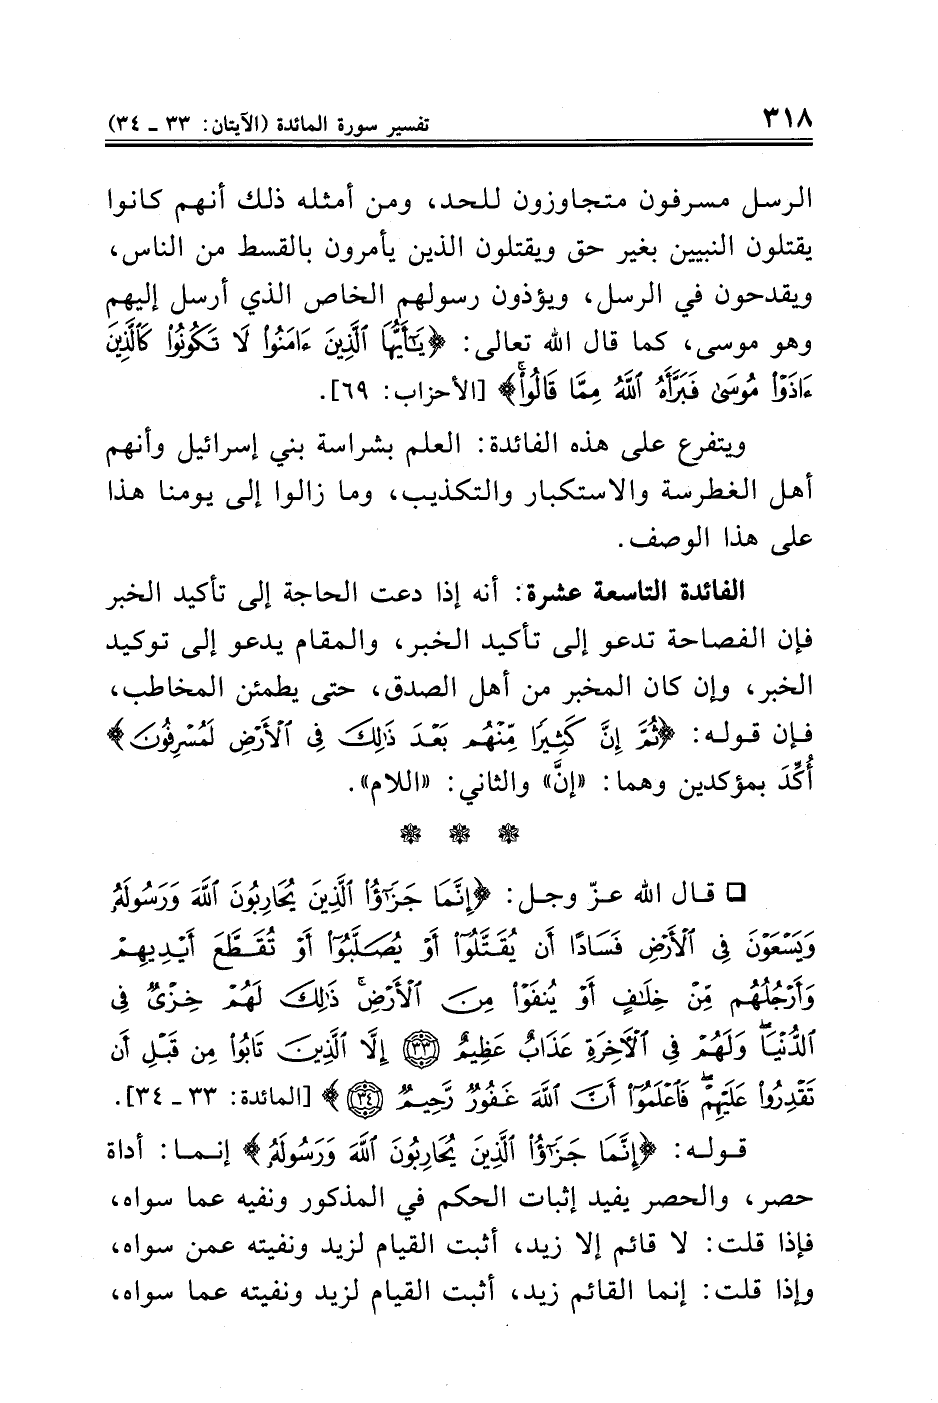 ٣١٨
تفسير سورة المائدة (الآيتان: ٣٣ ـ ٣٤)
الرسل مسرفون متجاوزون للحد، ومن أمثله ذلك أنهم كانوا
يقتلون النبيين بغير حق ويقتلون الذين يأمرون بالقسط من الناس،
ويقدحون في الرسل، ويؤذون رسولهم الخاص الذي أرسل إليهم
وهو موسى، كما قال الله تعالى: ﴿يَٰٓأَيُّهَا ٱلَّذِينَ ءَامَنُوا۟ لَا تَكُونُوا۟ كَٱلَّذِينَ
ءَاذَوْا۟ مُوسَىٰ فَبَرَّأَهُ ٱللَّهُ مِمَّا قَالُوا۟ۚ﴾ [الأحزاب: ٦٩].
ويتفرع على هذه الفائدة: العلم بشراسة بني إسرائيل وأنهم
أهل الغطرسة والاستكبار والتكذيب، وما زالوا إلى يومنا هذا
على هذا الوصف.
الفائدة التاسعة عشرة: أنه إذا دعت الحاجة إلى تأكيد الخبر
فإن الفصاحة تدعو إلى تأكيد الخبر، والمقام يدعو إلى توكيد
الخبر، وإن كان المخبر من أهل الصدق، حتى يطمئن المخاطب،
فإن قوله: ﴿ثُمَّ إِنَّ كَثِيرًا مِّنْهُم بَعْدَ ذَٰلِكَ فِى ٱلْأَرْضِ لَمُسْرِفُونَ﴾
أُكِّدَ بمؤكدين وهما: «إنَّ» والثاني: «اللام».
❁ ❁ ❁
❑ قال الله عزّ وجل: ﴿إِنَّمَا جَزَٰٓؤُا۟ ٱلَّذِينَ يُحَارِبُونَ ٱللَّهَ وَرَسُولَهُۥ
وَيَسْعَوْنَ فِى ٱلْأَرْضِ فَسَادًا أَن يُقَتَّلُوٓا۟ أَوْ يُصَلَّبُوٓا۟ أَوْ تُقَطَّعَ أَيْدِيهِمْ
وَأَرْجُلُهُم مِّنْ خِلَٰفٍ أَوْ يُنفَوْا۟ مِنَ ٱلْأَرْضِۚ ذَٰلِكَ لَهُمْ خِزْىٌ فِى
ٱلدُّنْيَاۖ وَلَهُمْ فِى ٱلْءَاخِرَةِ عَذَابٌ عَظِيمٌ ٣٣ إِلَّا ٱلَّذِينَ تَابُوا۟ مِن قَبْلِ أَن
تَقْدِرُوا۟ عَلَيْهِمْۖ فَٱعْلَمُوٓا۟ أَنَّ ٱللَّهَ غَفُورٌ رَّحِيمٌ ٣٤﴾ [المائدة: ٣٣ ـ ٣٤].
قوله: ﴿إِنَّمَا جَزَٰٓؤُا۟ ٱلَّذِينَ يُحَارِبُونَ ٱللَّهَ وَرَسُولَهُۥ﴾ إنما: أداة
حصر، والحصر يفيد إثبات الحكم في المذكور ونفيه عما سواه،
فإذا قلت: لا قائم إلا زيد، أثبت القيام لزيد ونفيته عمن سواه،
وإذا قلت: إنما القائم زيد، أثبت القيام لزيد ونفيته عما سواه،